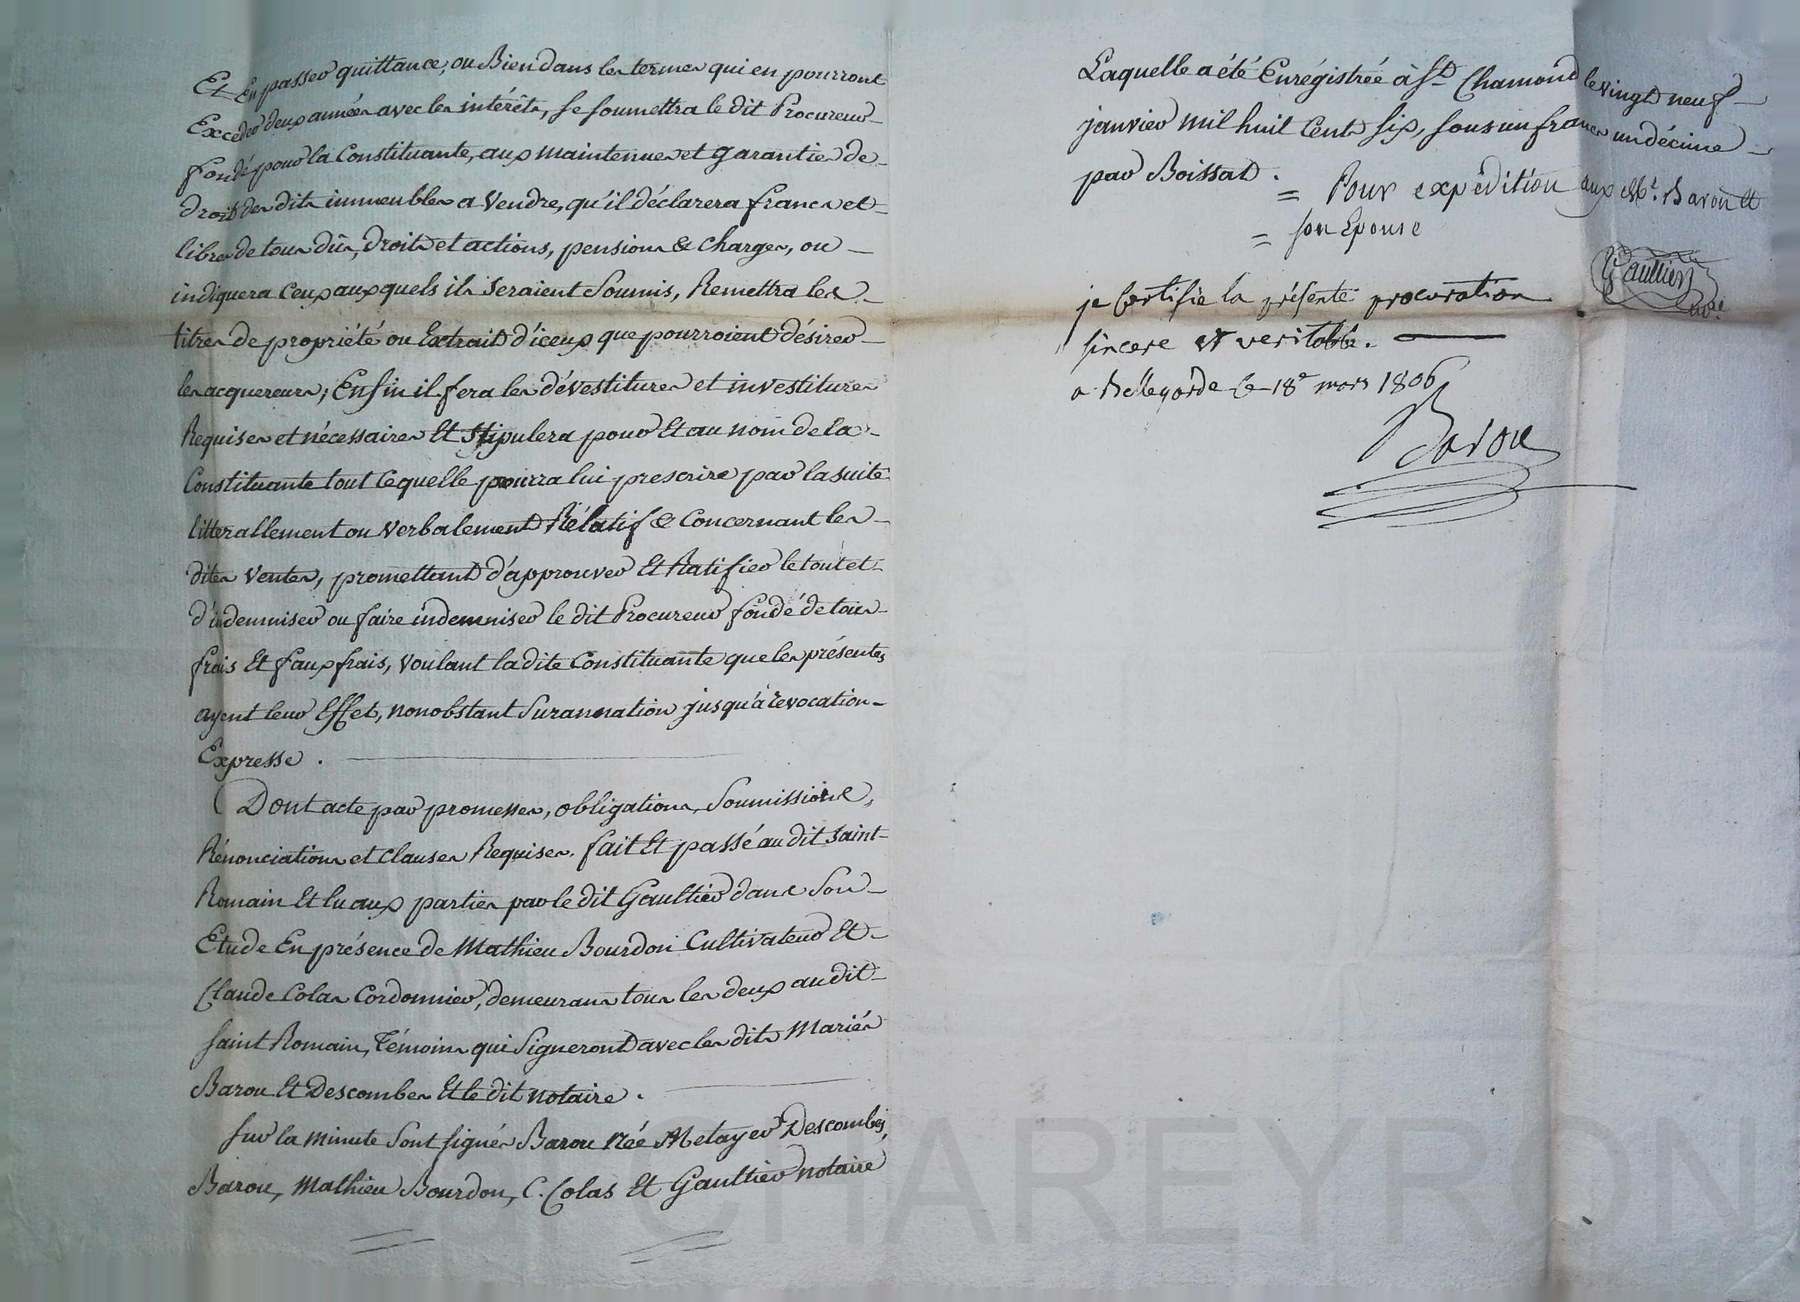 Et En passer quittance, ou Bien dans les termes qui en pourront
Excéder deux années avec les intérêts, se soumettra le dit Procureur
fondé pour la Constituante, aux maintenues et garanties de
droit des dits immeubles a Vendre, qu'il déclarera francs et
libres de tous dûs, droits et actions, pensions & charges, ou
indiquera Ceux auxquels ils seraient Soumis, Remettra les
titres de propriété ou Extrait d'iceux que pourroient désirer
les acquereurs; Enfin il fera les dévestitures et investitures
Requises et nécessaires Et Stipulera pour Et au nom de la
Constituante tout ce quelle pourra lui prescrire par la suite
litterallement ou Verbalement Rélatif & Concernant les
dites Ventes, promettant d'approuver Et Ratifier le tout et
d'indemniser ou faire indemniser le dit Procureur fondé de tous
frais Et faux frais, Voulant la dite Constituante que les présentes
ayent leur Effet, nonobstant Surannation jusqu'à révocation
Expresse.
Dont acte par promesses, obligations, Soumissions,
Rénonciations et Clauses Requises. fait Et passé au dit Saint
Romain Et lu aux parties par le dit Gaultier dans Son
Etude En présence de Mathieu Bourdon Cultivateur Et
Claude Colas Cordonnier, demeurans tous les deux au dit
Saint Romain, Témoins qui Signeront avec les dits Mariés
Barou Et Descombes Et le dit notaire.
Sur la minute Sont signés Barou née Metayer Descombes,
Barou, Mathieu Bourdon, C. Colas Et Gaultier notaire
Laquelle a été Enrégistrée à St Chamond le vingt neuf
janvier mil huit Cent six, sous un franc un décime
par Boissat.
= Pour expédition aux Mrs. Barou Et
= son Epouse
Gaultier
nore.
je Certifie la présente procuration
sincere et veritable.
a Bellegarde le 18e mars 1806
Barou
CHAREYRON